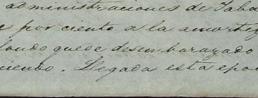 administraciones de Taba
e por ciento a la amortiz
fondo quede desembarazado
ciendo. Llegada esta epo